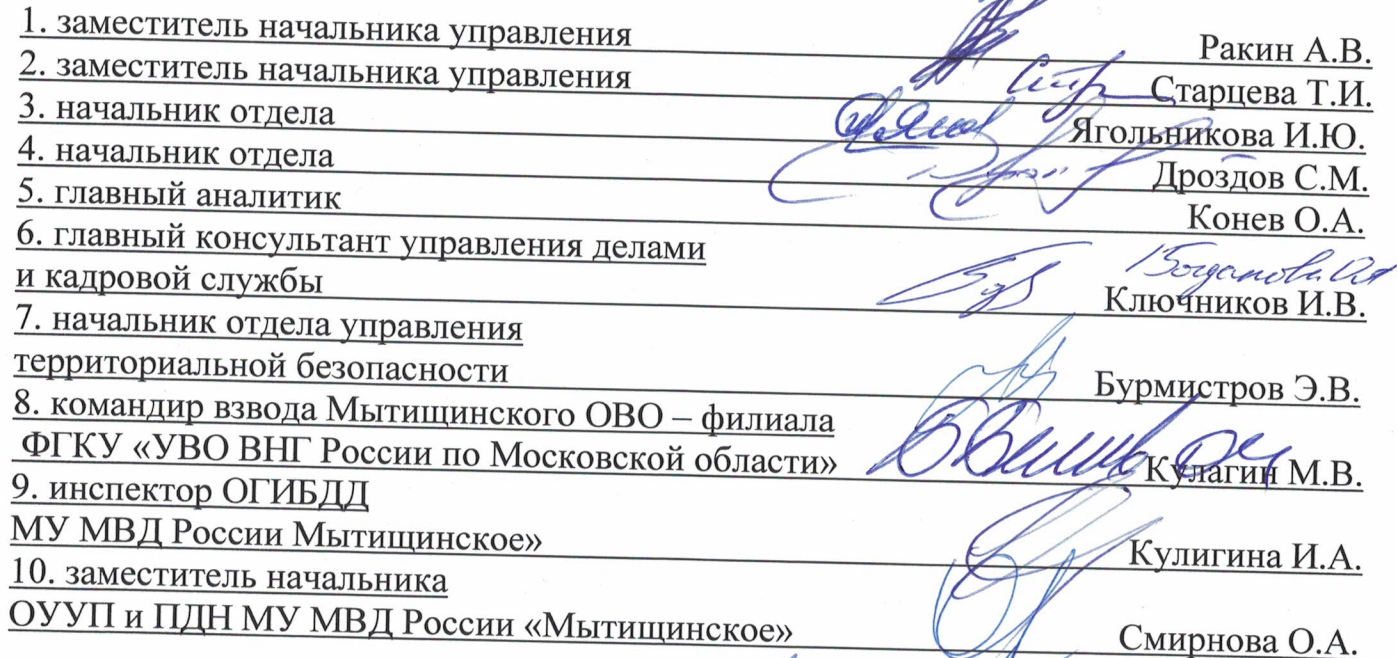 1. заместитель начальника управления Ракин А.В.
2. заместитель начальника управления Старцева Т.И.
3. начальник отдела Ягольникова И.Ю.
4. начальник отдела Дроздов С.М.
5. главный аналитик Конев О.А.
6. главный консультант управления делами
Богданова О.А.
и кадровой службы Ключников И.В.
7. начальник отдела управления
территориальной безопасности Бурмистров Э.В.
8. командир взвода Мытищинского ОВО – филиала
ФГКУ «УВО ВНГ России по Московской области» Кулагин М.В.
9. инспектор ОГИБДД
МУ МВД России Мытищинское» Кулигина И.А.
10. заместитель начальника
ОУУП и ПДН МУ МВД России «Мытищинское» Смирнова О.А.